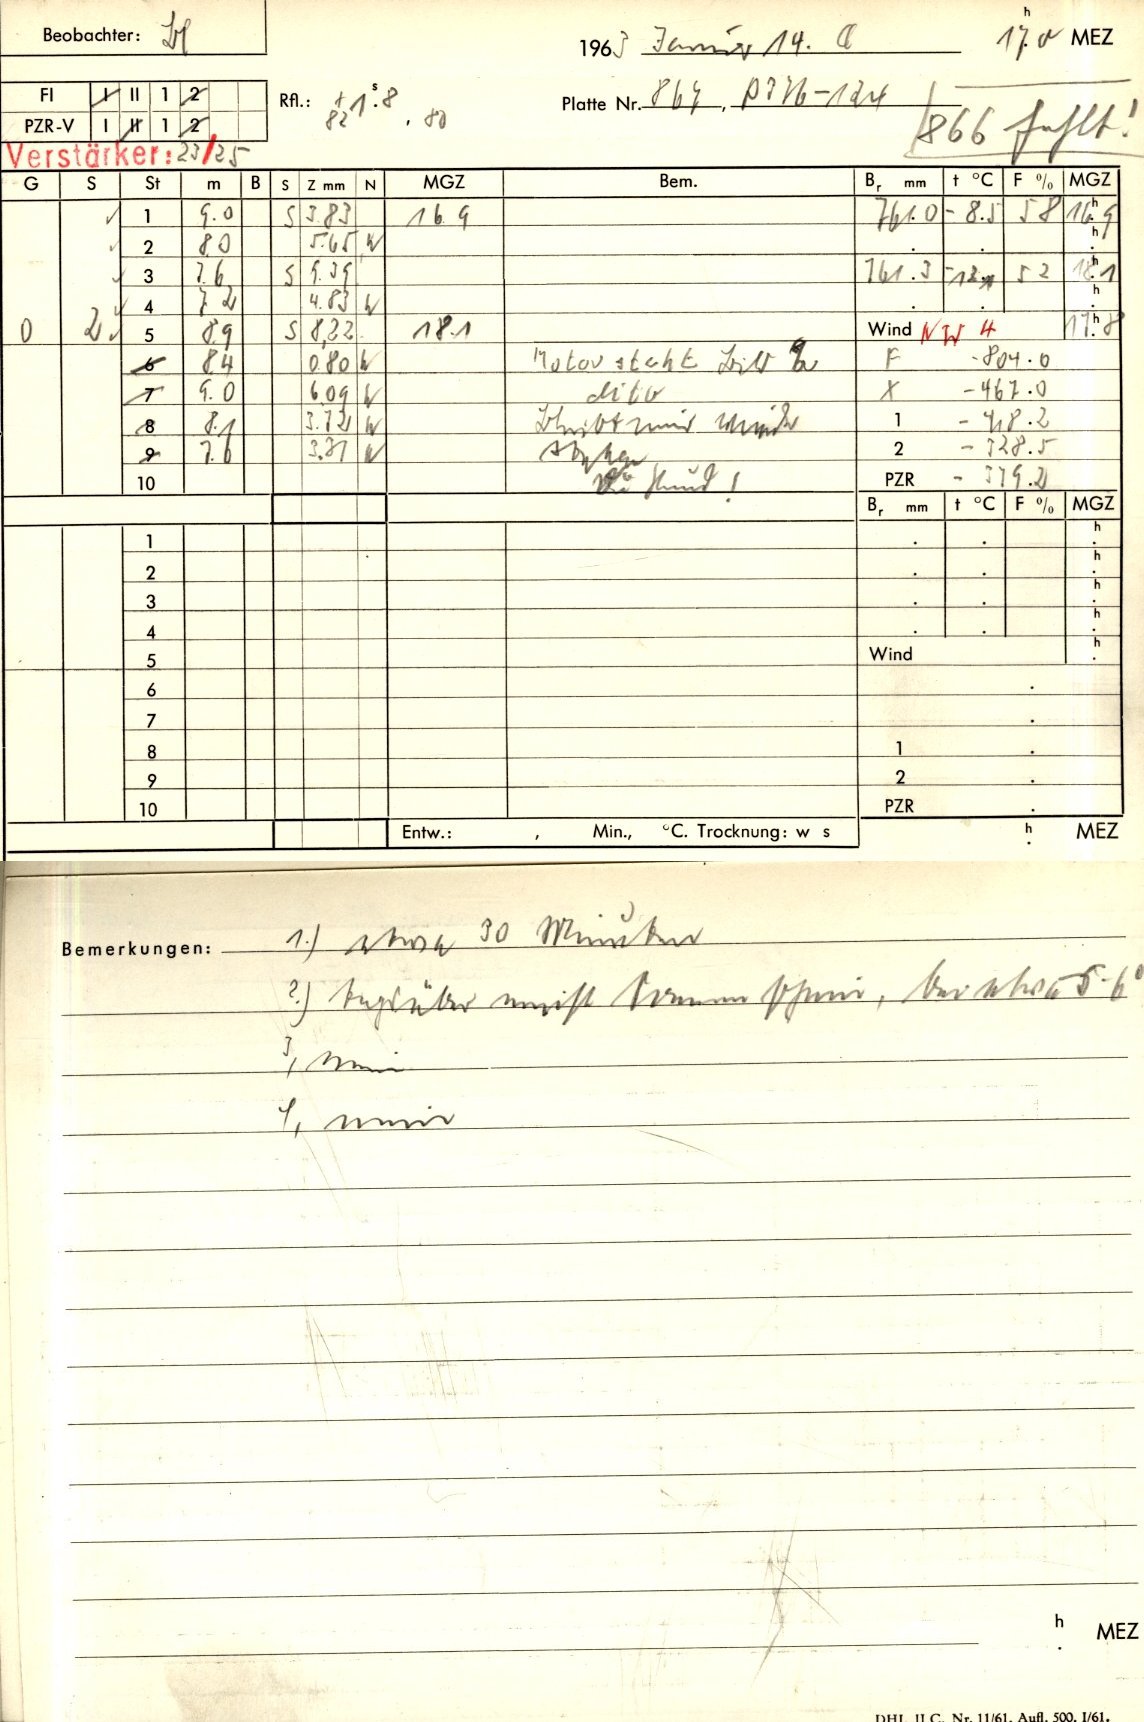 Beobachter:
1963 Januar 14. 17.0 h MEZ
FI I II 1 2
PZR-V I II 1 2
Rfl.: + 1 s.8
82 . 80
Platte Nr. 864,
866 fehlt!
Verstärker: 23/25
G S St m B S Z mm N MGZ Bem. Br mm t °C F % MGZ
✓ 1 9.0 S 3.83 16.9 761.0 -8.5 58 16.9 h
✓ 2 8.0 5.65 W . . h
✓ 3 7.6 S 9.39 761.3 52 18.1 h
✓ 4 7.2 4.83 W . . h
0 2 ✓ 5 8.9 S 8,22 18.1 Wind NW 4 17.8 h
6 8.4 0.80 W Motor steht F -804.0
7 9.0 6.09 W dito X -467.0
8 8.1 3.72 W bleibt 1
9 7.6 W 2 -328.5
10 ! PZR - 379.2
Br mm t °C F % MGZ
1 . . h
2 . . h
3 . . h
4 . . h
5 Wind h
6 .
7 .
8 1 .
9 2 .
10 PZR .
Entw.: , Min., °C. Trocknung: w s h MEZ
Bemerkungen: 1.) etwa 30 Minuten
2.) tagsüber meist Sonnenschein, bei etwa 5-6°
3,
4,
h MEZ
DHI. II C. Nr. 11/61. Aufl. 500. I/61.